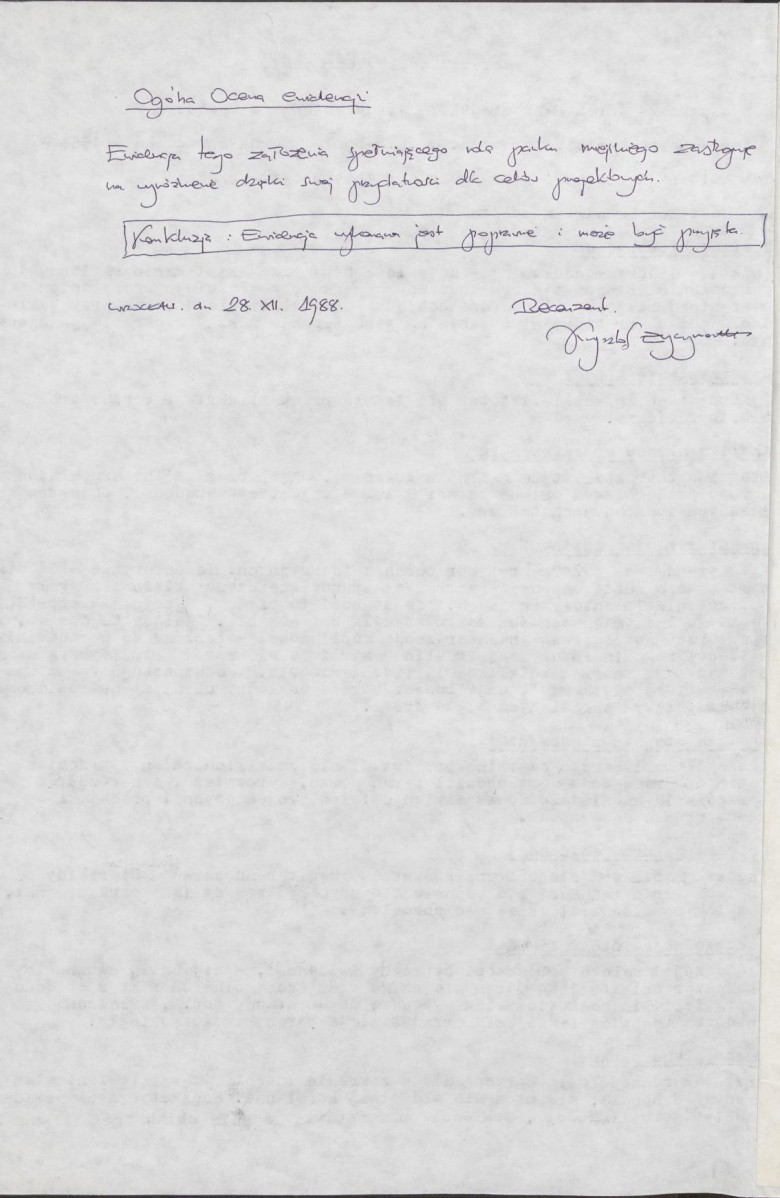 Ogólna Ocena ewidencji
Ewidencja tego założenia spełniającego rolę parku miejskiego zasługuje
na wyróżnienie dzięki swej przydatności dla celów projektowych.
Konkluzja : Ewidencja wykonana jest poprawnie i może być przyjęta.
WROCŁAW. dn 28. XII. 1988.
Recenzent.
Krzysztof